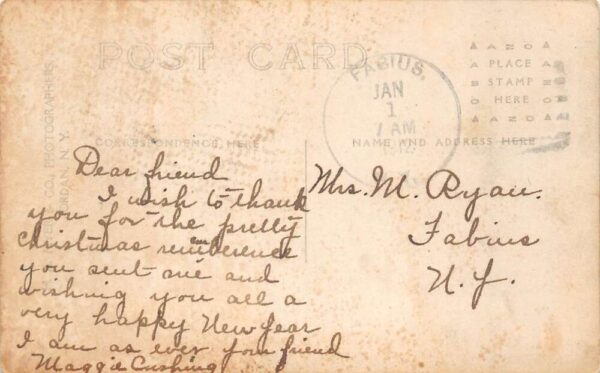 POST CARD
FABIUS,
JAN
1
7 AM
AZO
PLACE
STAMP
HERE
AZO
CO., PHOTOGRAPHERS
JORDAN, N.Y.
CORRESPONDENCE HERE
NAME AND ADDRESS HERE
Dear friend
I wish to thank
you for the pretty
Christmas rememberence
you sent me and
wishing you all a
very happy New Year
I am as ever your friend
Maggie Cushing
Mrs. M. Ryan.
Fabius
N.Y.